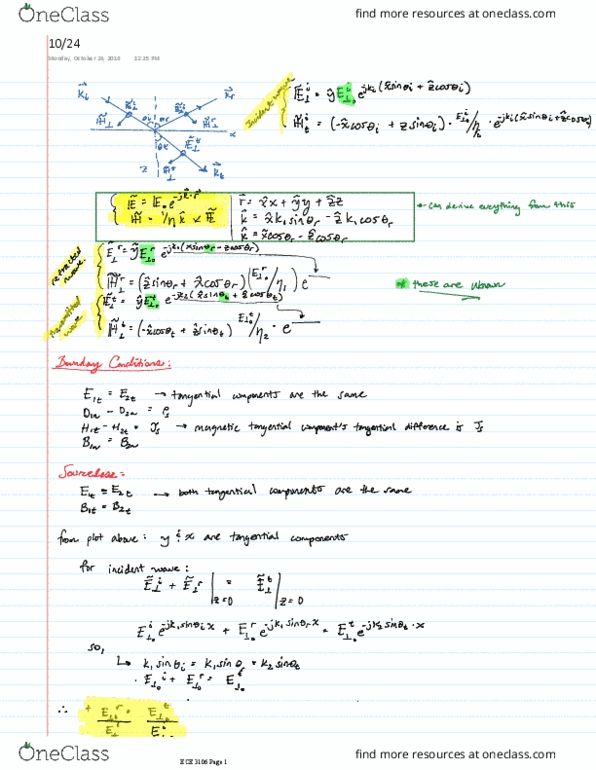 OneClass
find more resources at oneclass.com
10/24
Monday, October 24, 2016 12:25 PM
Incident wave
Ẽ⊥ⁱ = ŷ E⊥₀ⁱ e^{-jk₁(x̂ sinθᵢ + ẑ cosθᵢ)}
H̃ = (-x̂ cosθᵢ + ẑ sinθᵢ) · E⊥₀ⁱ/η₁ · e^{-jk₁(x̂ sinθᵢ + ẑ cosθᵢ)}
kᵢ kᵣ
θᵢ θᵣ x
θt
z kt
Ẽ = E₀ e^{-jk·r} r̄ = x̂x + ŷy + ẑz
H̃ = 1/η k̂ × Ẽ k̂ = x̂ k₁ sinθᵣ - ẑ k₁ cosθᵣ
← can derive everything from this
wave
Ẽ⊥ʳ = ŷ E⊥₀ʳ e^{-jk₁(x̂ sinθᵣ - ẑ cosθᵣ)}
H̃⊥ʳ = (ẑ sinθᵣ + x̂ cosθᵣ)(E⊥₀ʳ/η₁) e
these are
transmitted wave
Ẽ⊥ᵗ = ŷ E⊥₀ᵗ e^{-jk₂(x̂ sinθt + ẑ cosθt)}
H̃⊥ᵗ = (-x̂ cosθt + ẑ sinθt) E⊥₀ᵗ/η₂ · e
Boundary Conditions:
E₁t = E₂t → tangential components are the same
D₁n - D₂n = ρs
H₁t - H₂t = Js → magnetic tangential component's tangential difference is Js
B₁n = B₂n
Sourceless:
E₁t = E₂t → both tangential components are the same
B₁t = B₂t
from plot above: y & x are tangential components
for incident wave:
Ẽ⊥ⁱ + Ẽ⊥ʳ |z=0 = Ẽ⊥ᵗ |z=0
E⊥₀ⁱ e^{-jk₁ sinθᵢ x} + E⊥₀ʳ e^{-jk₁ sinθᵣ x} = E⊥₀ᵗ e^{-jk₂ sinθt · x}
so,
↳ k₁ sinθᵢ = k₁ sinθᵣ = k₂ sinθt
· E⊥₀ⁱ + E⊥₀ʳ = E⊥₀ᵗ
∴
OneClass
ECE 3106 Page 1
find more resources at oneclass.com